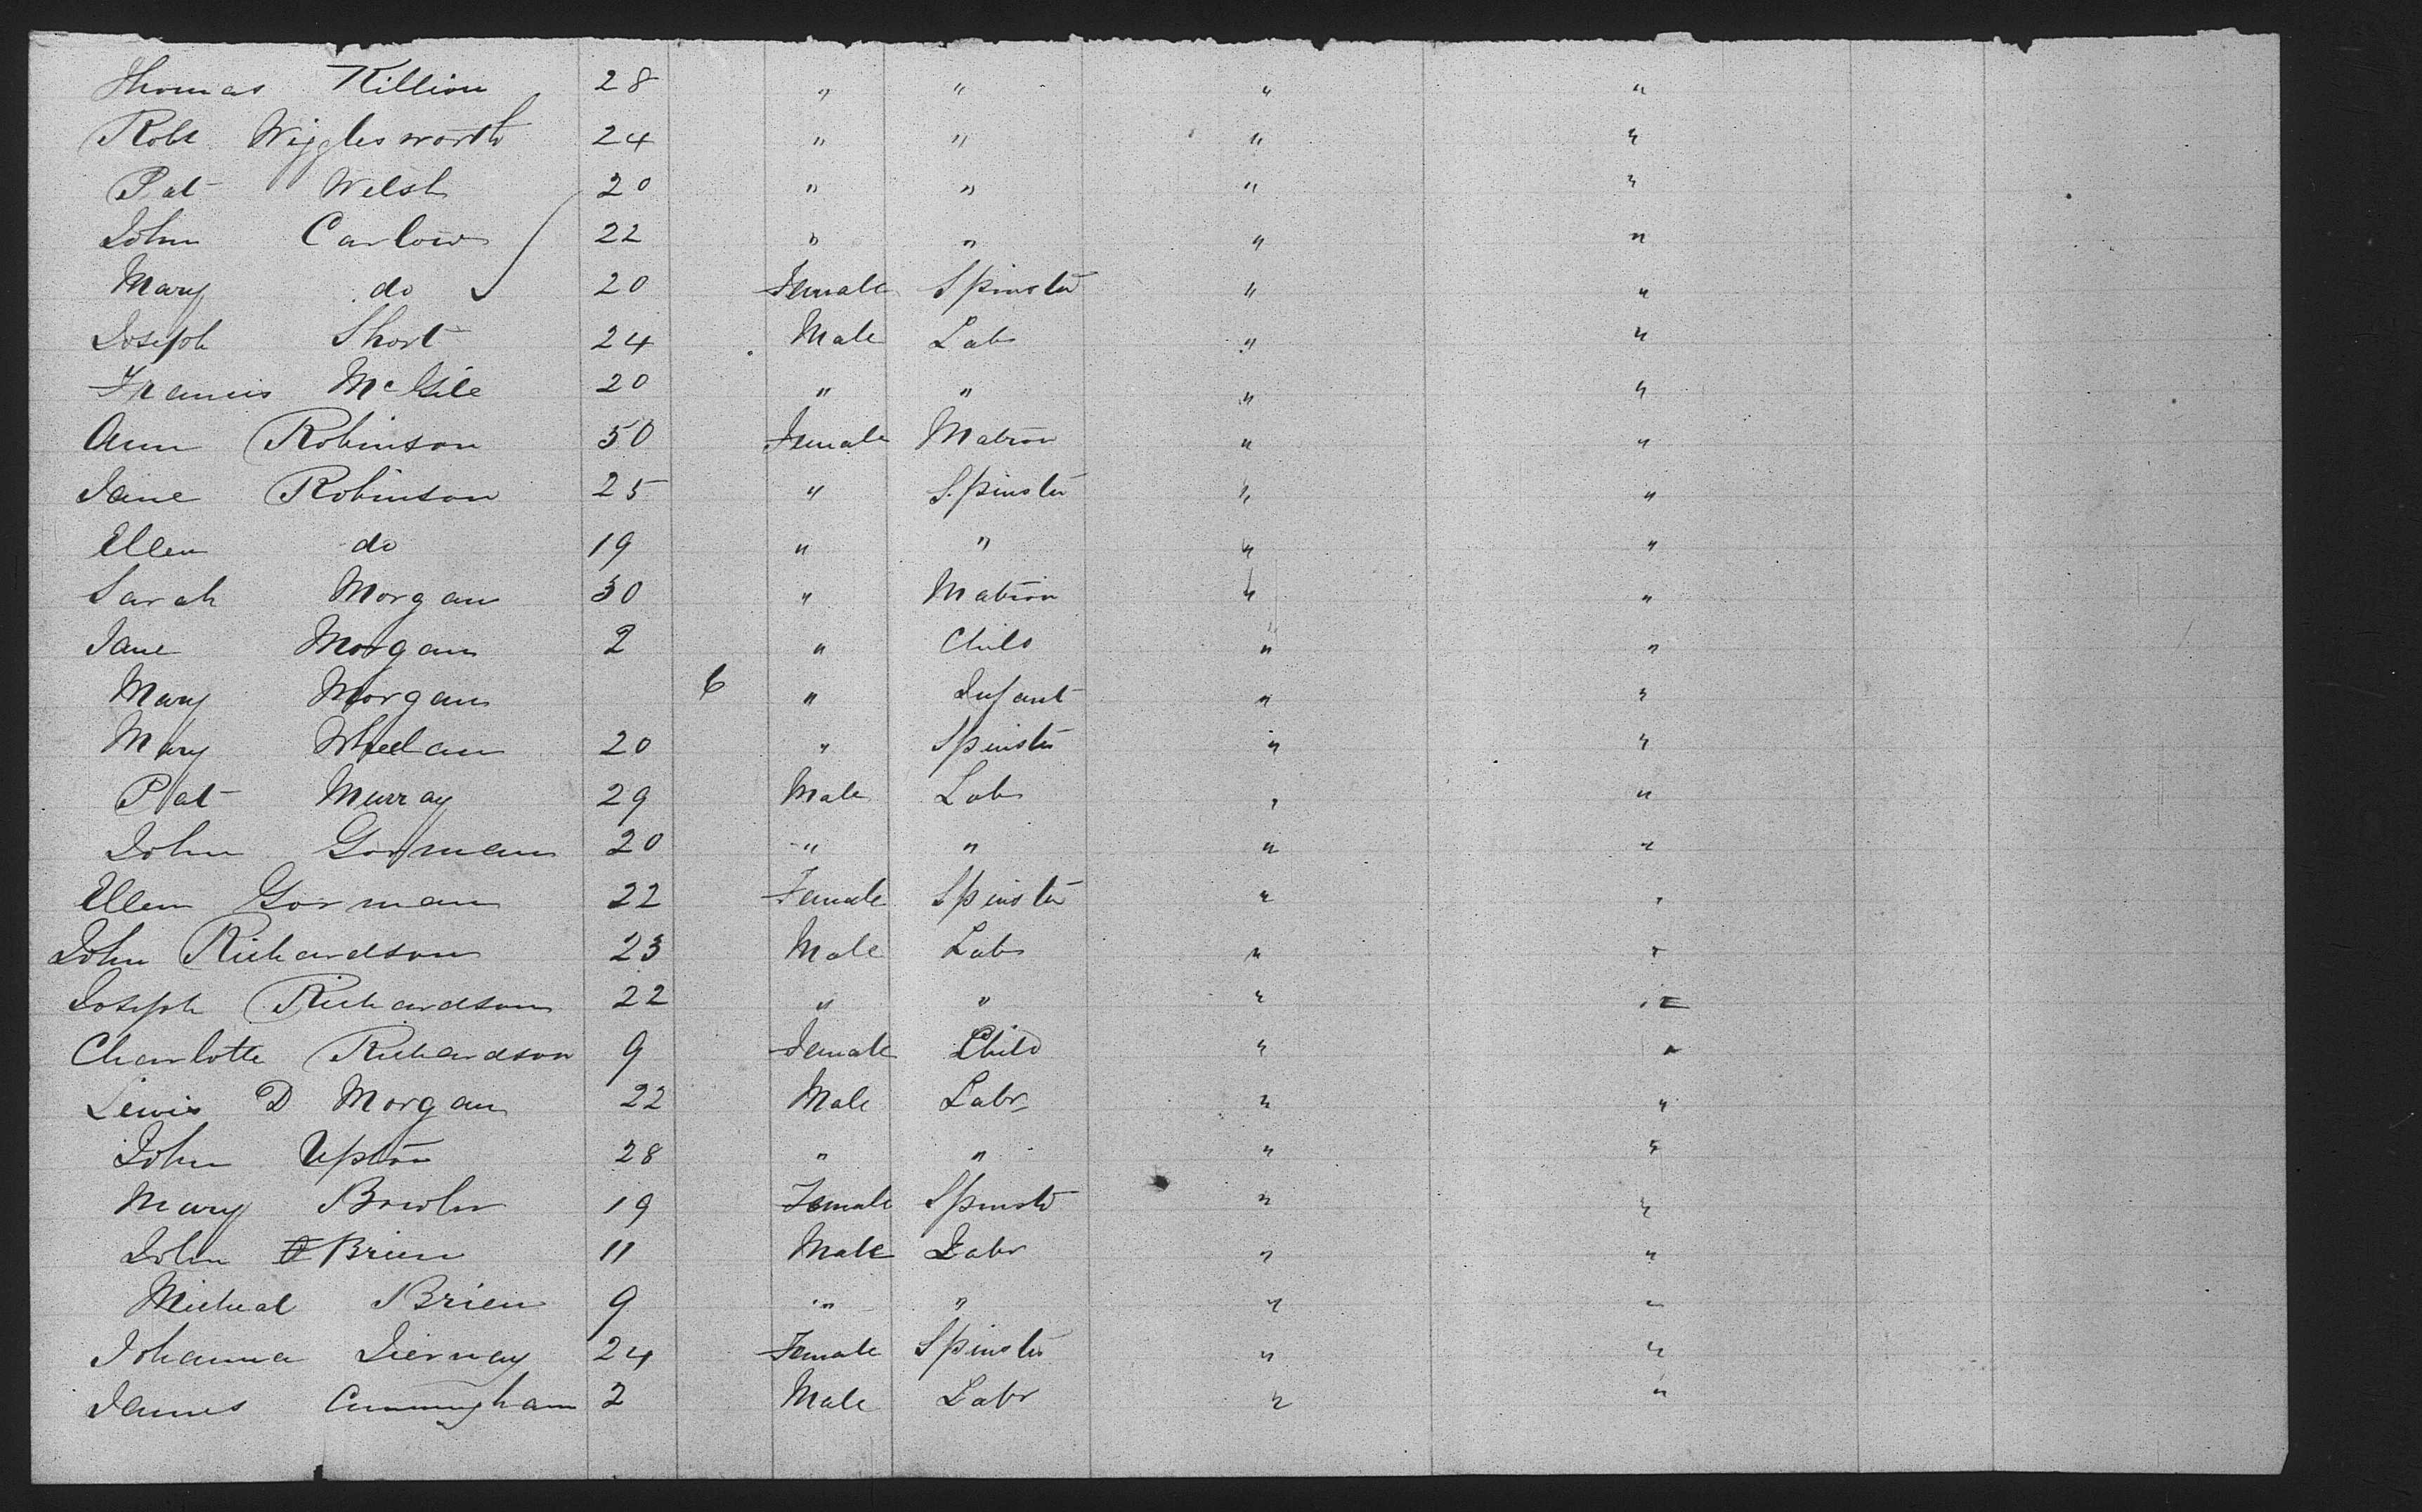 Thomas Killion 28 " " " "
Robt Wigglesworth 24 " " " "
Pat Welsh 20 " " " "
John Carlow 22 " " " "
Mary do 20 Female Spinster " "
Joseph Short 24 Male Lab " "
Francis McGile 20 " " " "
Ann Robinson 50 Female Matron " "
Jane Robinson 25 " Spinster " "
Ellen do 19 " " " "
Sarah Morgan 30 " Matron " "
Jane Morgan 2 " Child " "
Mary Morgan 6 " Infant " "
Mary Wheelan 20 " Spinster " "
Pat Murray 29 Male Lab " "
John Gorman 20 " " " "
Ellen Gorman 22 Female Spinster " "
John Richardson 23 Male Lab " "
Joseph Richardson 22 " " " "
Charlotte Richardson 9 Female Child " "
Lewis D Morgan 22 Male Labr " "
John Upton 28 " " " "
Mary 19 Female Spinster " "
John O Brien 11 Male Labr " "
Micheal Brien 9 " " " "
Johanna 24 Female Spinster " "
James Cunningham 2 Male Labr " "